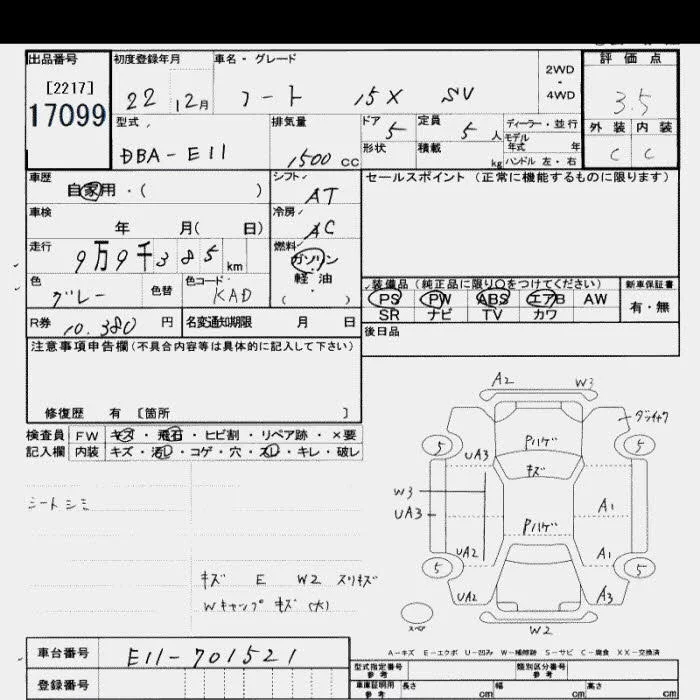 出品番号 初度登録年月 車名・グレード 評価点
[2217]
17099
22 12月 ノート 15X SV 2WD・4WD 3.5
型式 排気量 ドア 5 定員 5 人 ディーラー・並行 外装 内装
モデル年式 年
DBA-E11 1500 cc 形状 積載 kg ハンドル 左・右 C C
車歴 シフト セールスポイント (正常に機能するものに限ります)
自家用・( ) AT
車検 冷房
年 月( 日) AC
走行 燃料
9万9千385 km ガソリン
軽油
( )
色 色替 色コード
グレー KAD
装備品 (純正品に限り○をつけてください) 新車保証書
PS PW ABS エアB AW 有・無
SR ナビ TV カワ
R券 10.380 円 名変通知期限 月 日 後日品
注意事項申告欄 (不具合内容等は具体的に記入して下さい)
修復歴 有 [箇所 ]
検査員 FW キズ・飛石・ヒビ割・リペア跡・×要
記入欄 内装 キズ・汚れ・コゲ・穴・スレ・キレ・破レ
シートシミ
キズ E W2 スリキズ
Wキャップ キズ(大)
A2 W3
5 5
Pハゲ
UA3 キズ
W3
UA3 A1
Pハゲ
UA2 A1
5 5
UA2 A3
スペア W2
A-キズ E-エクボ U-凹み W-補修跡 S-サビ C-腐食 XX-交換済
車台番号 E11-701521
登録番号
型式指定番号 参考 類別区分番号 参考
車庫証明用 参考 長さ cm 幅 cm 高さ cm